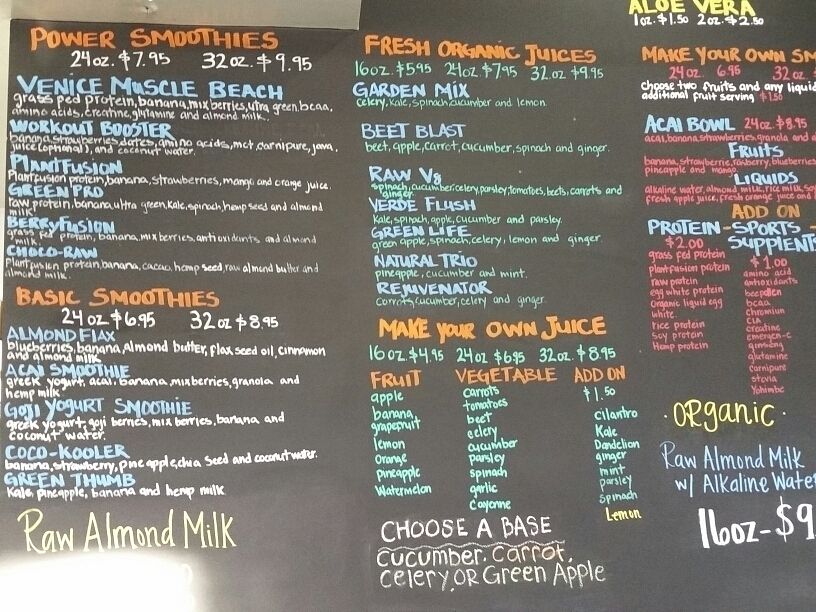 POWER SMOOTHIES
24oz. $7.95 32oz. $9.95
VENICE MUSCLE BEACH
grass fed protein, banana, mix berries, ultra green, bcaa,
amino acids, creatine, glutamine and almond milk.
WORKOUT BOOSTER
banana, strawberries, dates, amino acids, mct, carnipure, java,
juice (optional), and coconut water.
PLANTFUSION
Plantfusion protein, banana, strawberries, mango and orange juice.
GREEN PRO
raw protein, banana, ultra green, kale, spinach, hemp seed and almond
milk.
BERRYFUSION
grass fed protein, banana, mix berries, antioxidants and almond
milk.
CHOCO-RAW
Plantfusion protein, banana, cacao, hemp seed, raw almond butter and
almond milk.
BASIC SMOOTHIES
24oz $6.95 32oz $8.95
ALMOND FLAX
blueberries, banana, Almond butter, flax seed oil, cinnamon
and almond milk
ACAI SMOOTHIE
greek yogurt, acai, banana, mixberries, granola and
hemp milk.
GOJI YOGURT SMOOTHIE
greek yogurt, goji berries, mix berries, banana and
coconut water.
COCO-KOOLER
banana, strawberry, pineapple, chia seed and coconut water.
GREEN THUMB
Kale, pineapple, banana and hemp milk
Raw Almond Milk
FRESH ORGANIC JUICES
16oz. $5.95 24oz $7.95 32oz $9.95
GARDEN MIX
celery, kale, spinach, cucumber and lemon.
BEET BLAST
beet, apple, carrot, cucumber, spinach and ginger.
RAW V8
spinach, cucumber, celery, parsley, tomatoes, beets, carrots and
ginger.
VERDE FLUSH
Kale, spinach, apple, cucumber and parsley.
GREEN LIFE
green apple, spinach, celery, lemon and ginger.
NATURAL TRIO
pineapple, cucumber and mint.
REJUVENATOR
Carrots, cucumber, celery and ginger.
MAKE YOUR OWN JUICE
16oz $4.95 24oz $6.95 32oz. $8.95
FRUIT
apple
banana
grapefruit
lemon
Orange
pineapple
Watermelon
VEGETABLE
carrots
tomatoes
beet
celery
cucumber
parsley
spinach
garlic
Cayenne
ADD ON
$1.50
cilantro
Kale
Dandelion
ginger
mint
parsley
spinach
Lemon
CHOOSE A BASE
cucumber. Carrot.
celery, OR Green Apple
ALOE VERA
1oz. $1.50 2oz. $2.50
MAKE YOUR OWN SM
24oz. 6.95 32oz
choose two fruits and any liquid
additional fruit serving $1.50
ACAI BOWL 24oz $8.95
acai, banana, strawberries, granola and
FRUITS
banana, strawberrie, rasberry, blueberries
pineapple and mango.
LIQUIDS
alkaline water, almond milk, rice milk, soy
fresh apple juice, fresh orange juice and
ADD ON
PROTEIN - SPORTS -
SUPPLIENTS
$2.00
grass fed protein
plantfusion protein
raw protein
egg white protein
Organic liquid egg
white
rice protein
Soy protein
Hemp protein
$1.00
amino acid
antioxidants
beepollen
bcaa
chromiun
CLA
creatine
emergen-c
ginseng
glutamine
carnipure
stevia
Yohimbe
· ORganic ·
Raw Almond Milk
w/ Alkaline Water
16oz-$9